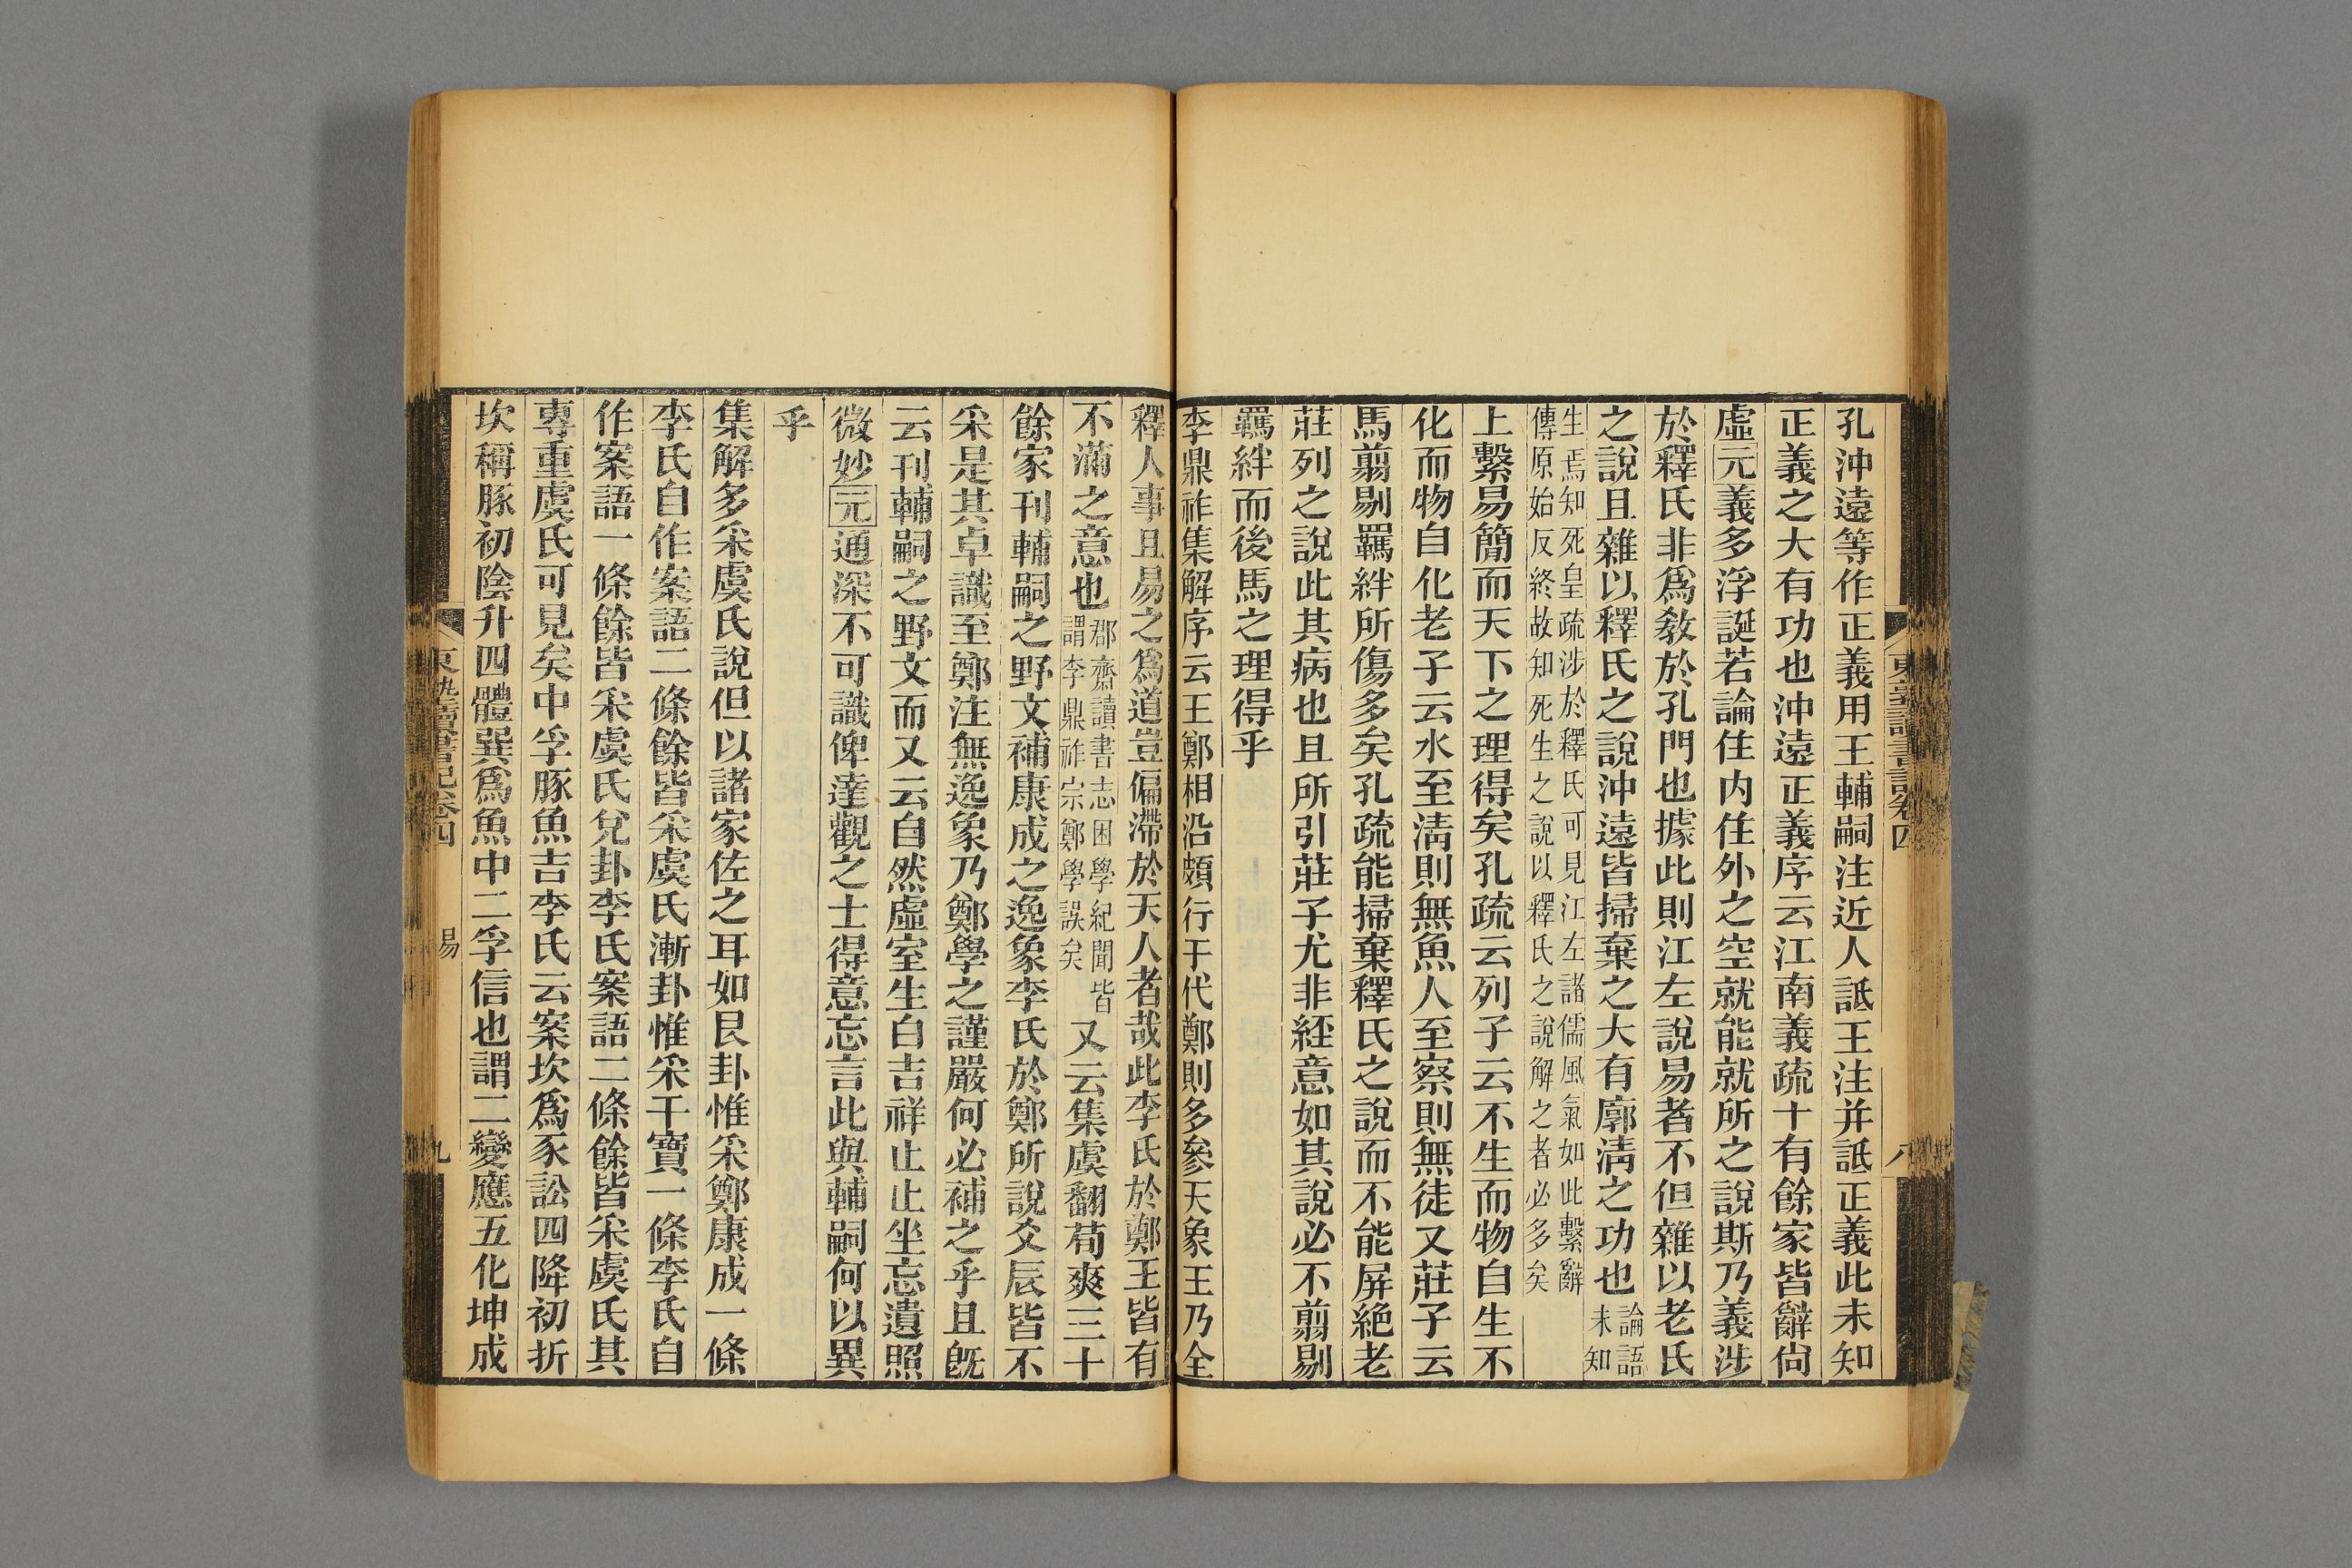 孔沖遠等作正義用王輔嗣注近人詆王注并詆正義此未知
正義之大有功也沖遠正義序云江南義疏十有餘家皆辭尙
虛元義多浮誕若論住內住外之空就能就所之說斯乃義涉
於釋氏非爲敎於孔門也據此則江左說易者不但雜以老氏
之說且雜以釋氏之說沖遠皆掃棄之大有廓淸之功也
論語
未知
生焉知死皇疏涉於釋氏可見江左諸儒風氣如此繫辭
傳原始反終故知死生之說以釋氏之說解之者必多矣
上繫易簡而天下之理得矣孔疏云列子云不生而物自生不
化而物自化老子云水至淸則無魚人至察則無徒又莊子云
馬翦剔羈絆所傷多矣孔疏能掃棄釋氏之說而不能屏絕老
莊列之說此其病也且所引莊子尤非經意如其說必不翦剔
羈絆而後馬之理得乎
李鼎祚集解序云王鄭相沿頗行于代鄭則多參天象王乃全
釋人事且易之爲道豈偏滯於天人者哉此李氏於鄭王皆有
不滿之意也
郡齋讀書志困學紀聞皆
謂李鼎祚宗鄭學誤矣
又云集虞翻荀爽三十
餘家刊輔嗣之野文補康成之逸象李氏於鄭所說爻辰皆不
采是其卓識至鄭注無逸象乃鄭學之謹嚴何必補之乎且旣
云刊輔嗣之野文而又云自然虛室生白吉祥止止坐忘遺照
微妙元通深不可識俾達觀之士得意忘言此與輔嗣何以異
乎
集解多采虞氏說但以諸家佐之耳如艮卦惟采鄭康成一條
李氏自作案語二條餘皆采虞氏漸卦惟采干寶一條李氏自
作案語一條餘皆采虞氏兌卦李氏案語二條餘皆采虞氏其
專重虞氏可見矣中孚豚魚吉李氏云案坎爲豕訟四降初折
坎稱豚初陰升四體巽爲魚中二孚信也謂二變應五化坤成
東塾讀書記卷四
易
九